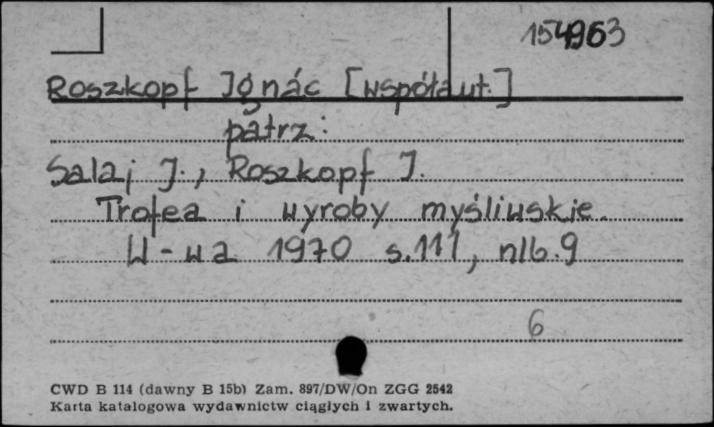 154963
Roszkopf Ignác [współaut.]
patrz:
Salaj J., Roszkopf J.
Trofea i wyroby myśliwskie.
W-wa 1970 s.111, nlb.9
6
CWD B 114 (dawny B 15b) Zam. 897/DW/On ZGG 2542
Karta katalogowa wydawnictw ciągłych i zwartych.